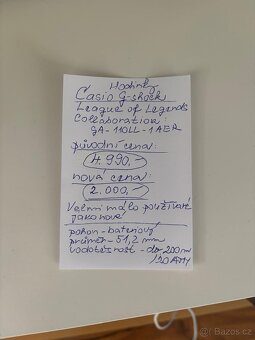 Hodinky
Casio G-shock
League of Legends
Collaboration
GA-110LL-1AER
původní cena:
4.990,-
nová cena:
2.000,-
Velmi málo používané
jako nové
pohon - bateriový
průměr - 51,2 mm
vodotěsnost - do 200m
/20 ATM
Bazoš.cz